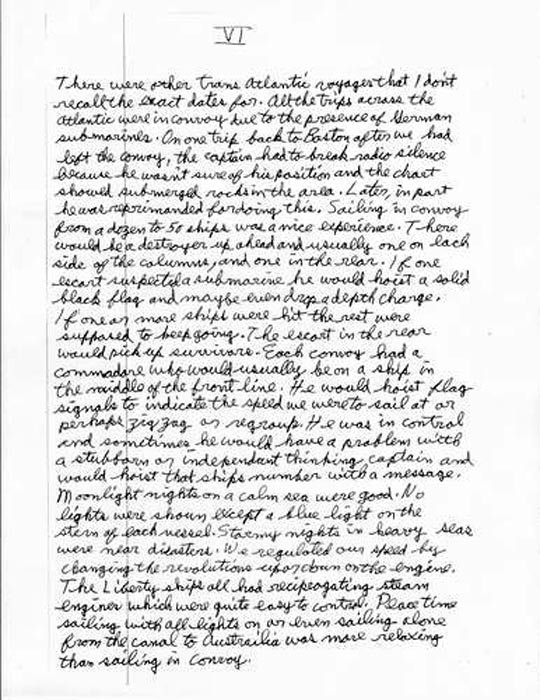 VI
There were other trans Atlantic voyages that I don't
recall the exact dates for. All the trips across the
Atlantic were in convoy due to the presence of German
submarines. On one trip back to Boston after we had
left the convoy, the captain had to break radio silence
because he wasn't sure of his position and the chart
showed submerged rocks in the area. Later, in port
he was reprimanded for doing this. Sailing in convoy
from a dozen to 50 ships was a nice experience. There
would be a destroyer up ahead and usually one on each
side of the columns, and one in the rear. If one
escort suspected a submarine he would hoist a solid
black flag and maybe even drop a depth charge.
If one or more ships were hit the rest were
supposed to keep going. The escort in the rear
would pick up survivors. Each convoy had a
commodore who would usually be on a ship in
the middle of the front line. He would hoist flag
signals to indicate the speed we were to sail at or
perhaps zig zag or regroup. He was in control
and sometimes he would have a problem with
a stubborn or independant thinking captain and
would hoist that ships number with a message.
Moonlight nights on a calm sea were good. No
lights were shown except a blue light on the
stern of each vessel. Stormy nights in heavy seas
were near disasters. We regulated our speed by
changing the revolutions up or down on the engine.
The Liberty ships all had reciprogating steam
engines which were quite easy to control. Peace time
sailing with all lights on or even sailing alone
from the canal to Austrailia was more relaxing
than sailing in convoy.